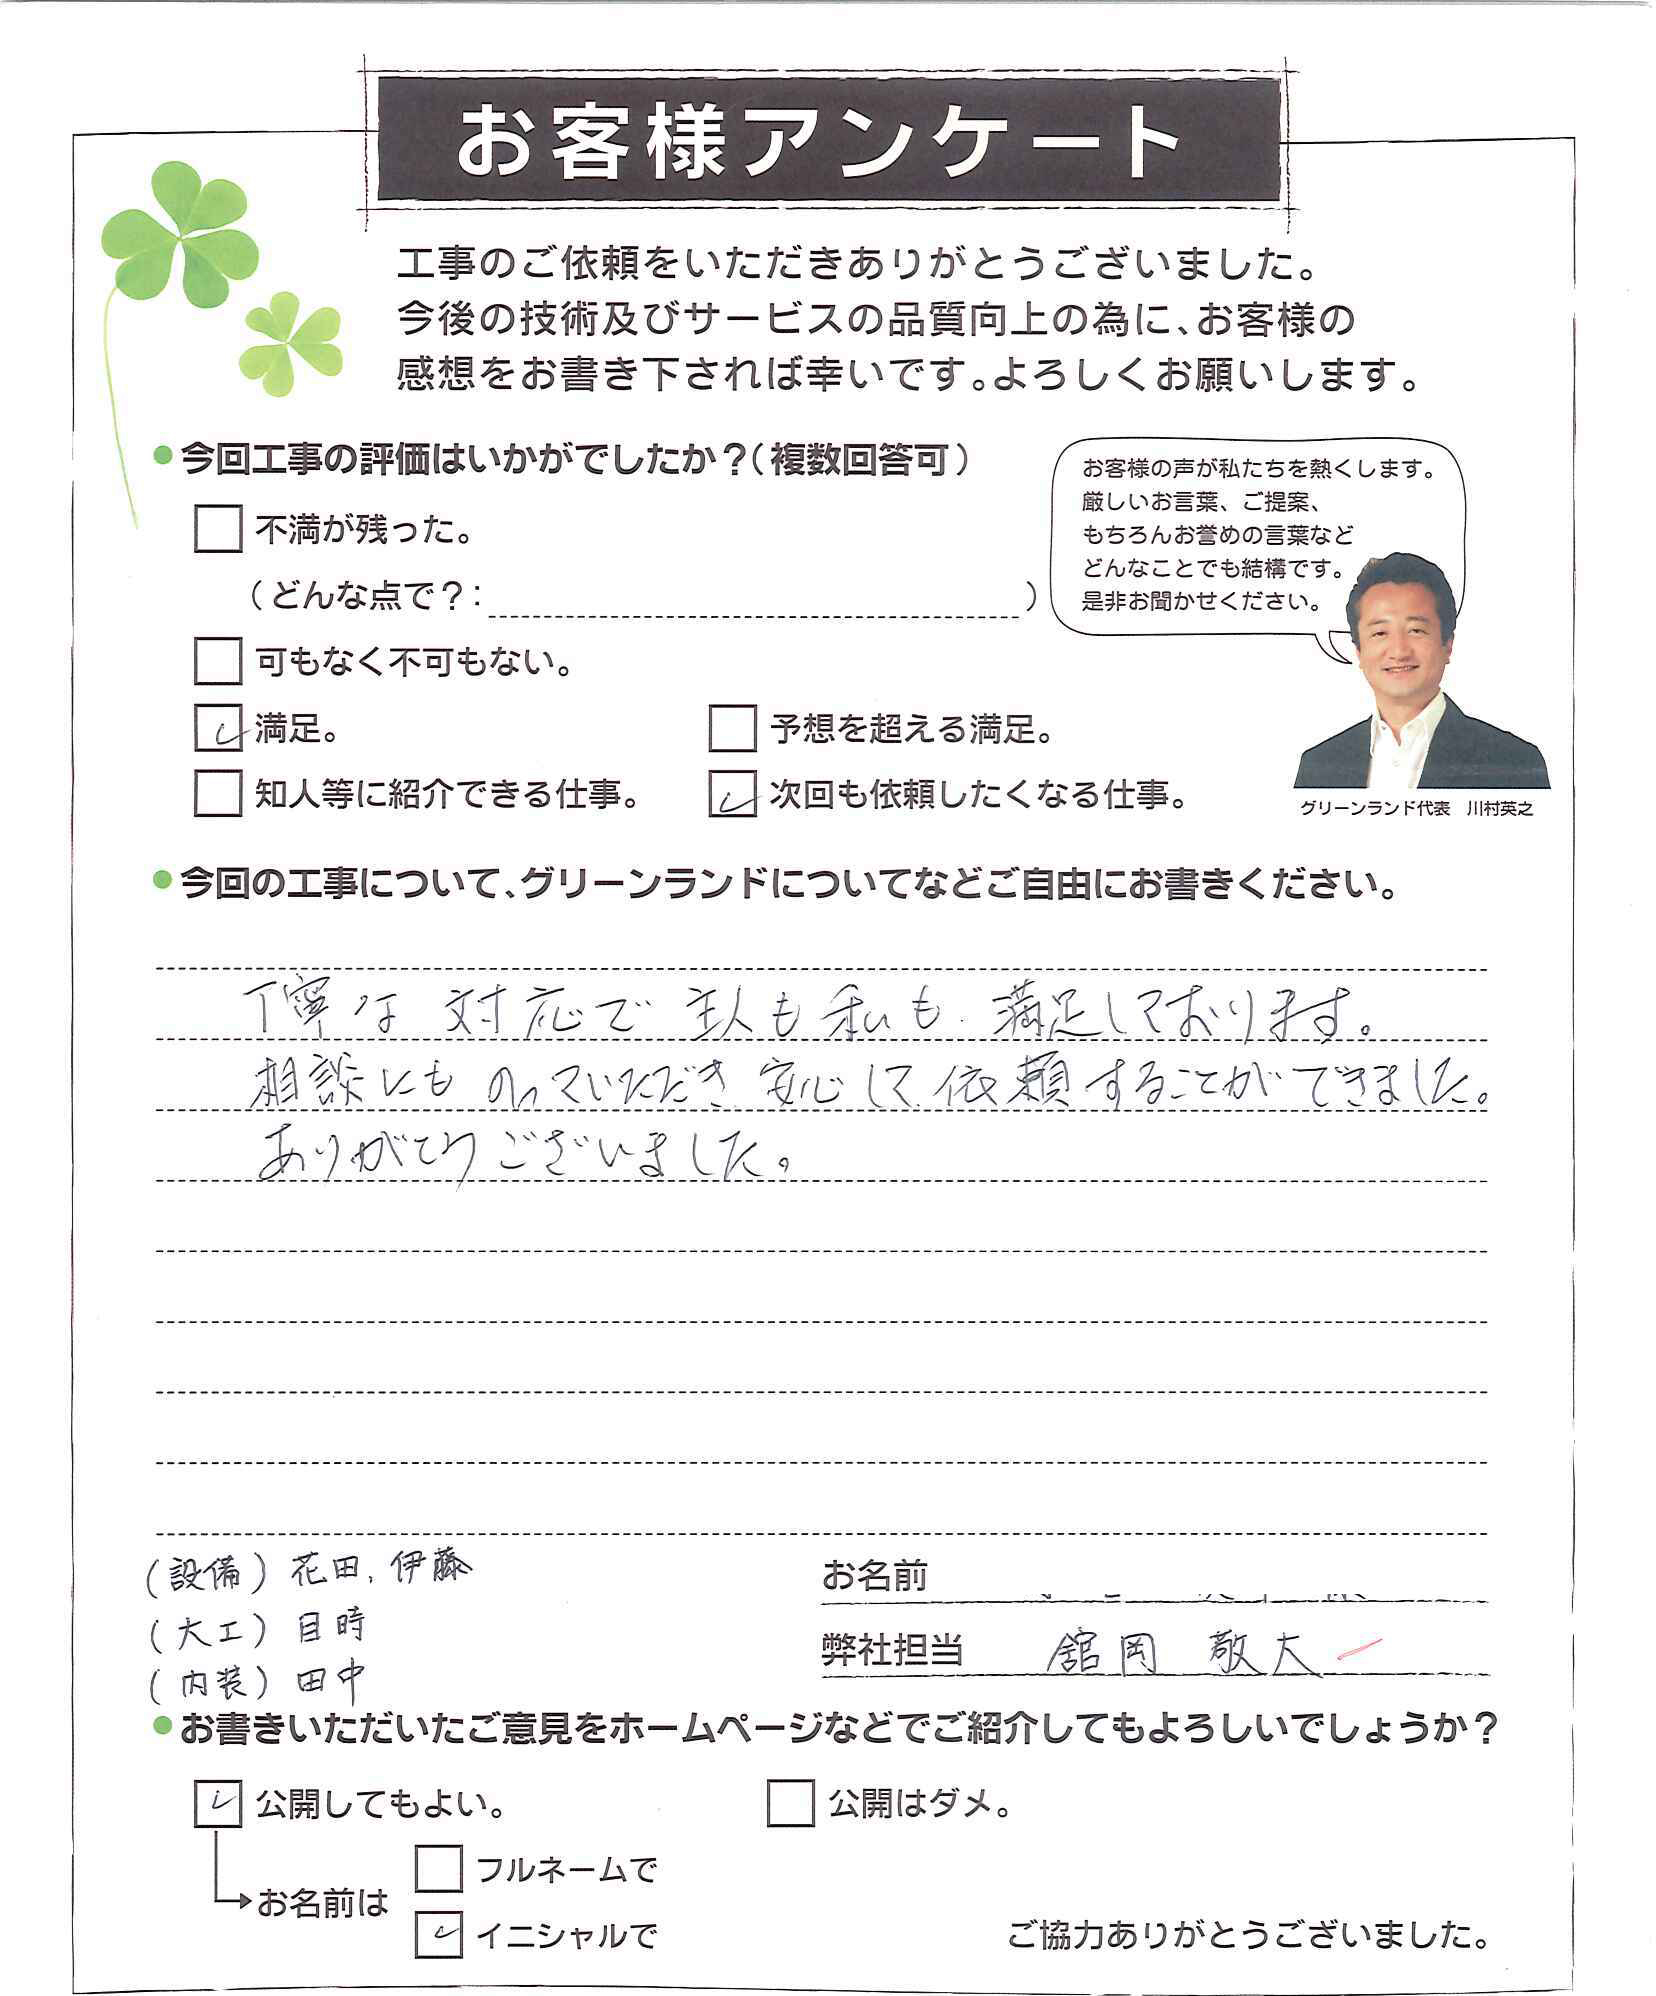 お客様アンケート
工事のご依頼をいただきありがとうございました。
今後の技術及びサービスの品質向上の為に、お客様の
感想をお書き下されば幸いです。よろしくお願いします。
今回工事の評価はいかがでしたか?(複数回答可)
お客様の声が私たちを熱くします。
厳しいお言葉、ご提案、
もちろんお誉めの言葉など
どんなことでも結構です。
是非お聞かせください。
不満が残った。
(どんな点で?: )
可もなく不可もない。
満足。 予想を超える満足。
知人等に紹介できる仕事。 次回も依頼したくなる仕事。
グリーンランド代表 川村英之
今回の工事について、グリーンランドについてなどご自由にお書きください。
丁寧な対応で主人も私も満足しております。
相談にものっていただき安心して依頼することができました。
ありがとうございました。
(設備)花田,伊藤
(大工)目時
(内装)田中
お名前
弊社担当 舘岡 敬大
お書きいただいたご意見をホームページなどでご紹介してもよろしいでしょうか?
公開してもよい。 公開はダメ。
お名前は
フルネームで
イニシャルで
ご協力ありがとうございました。